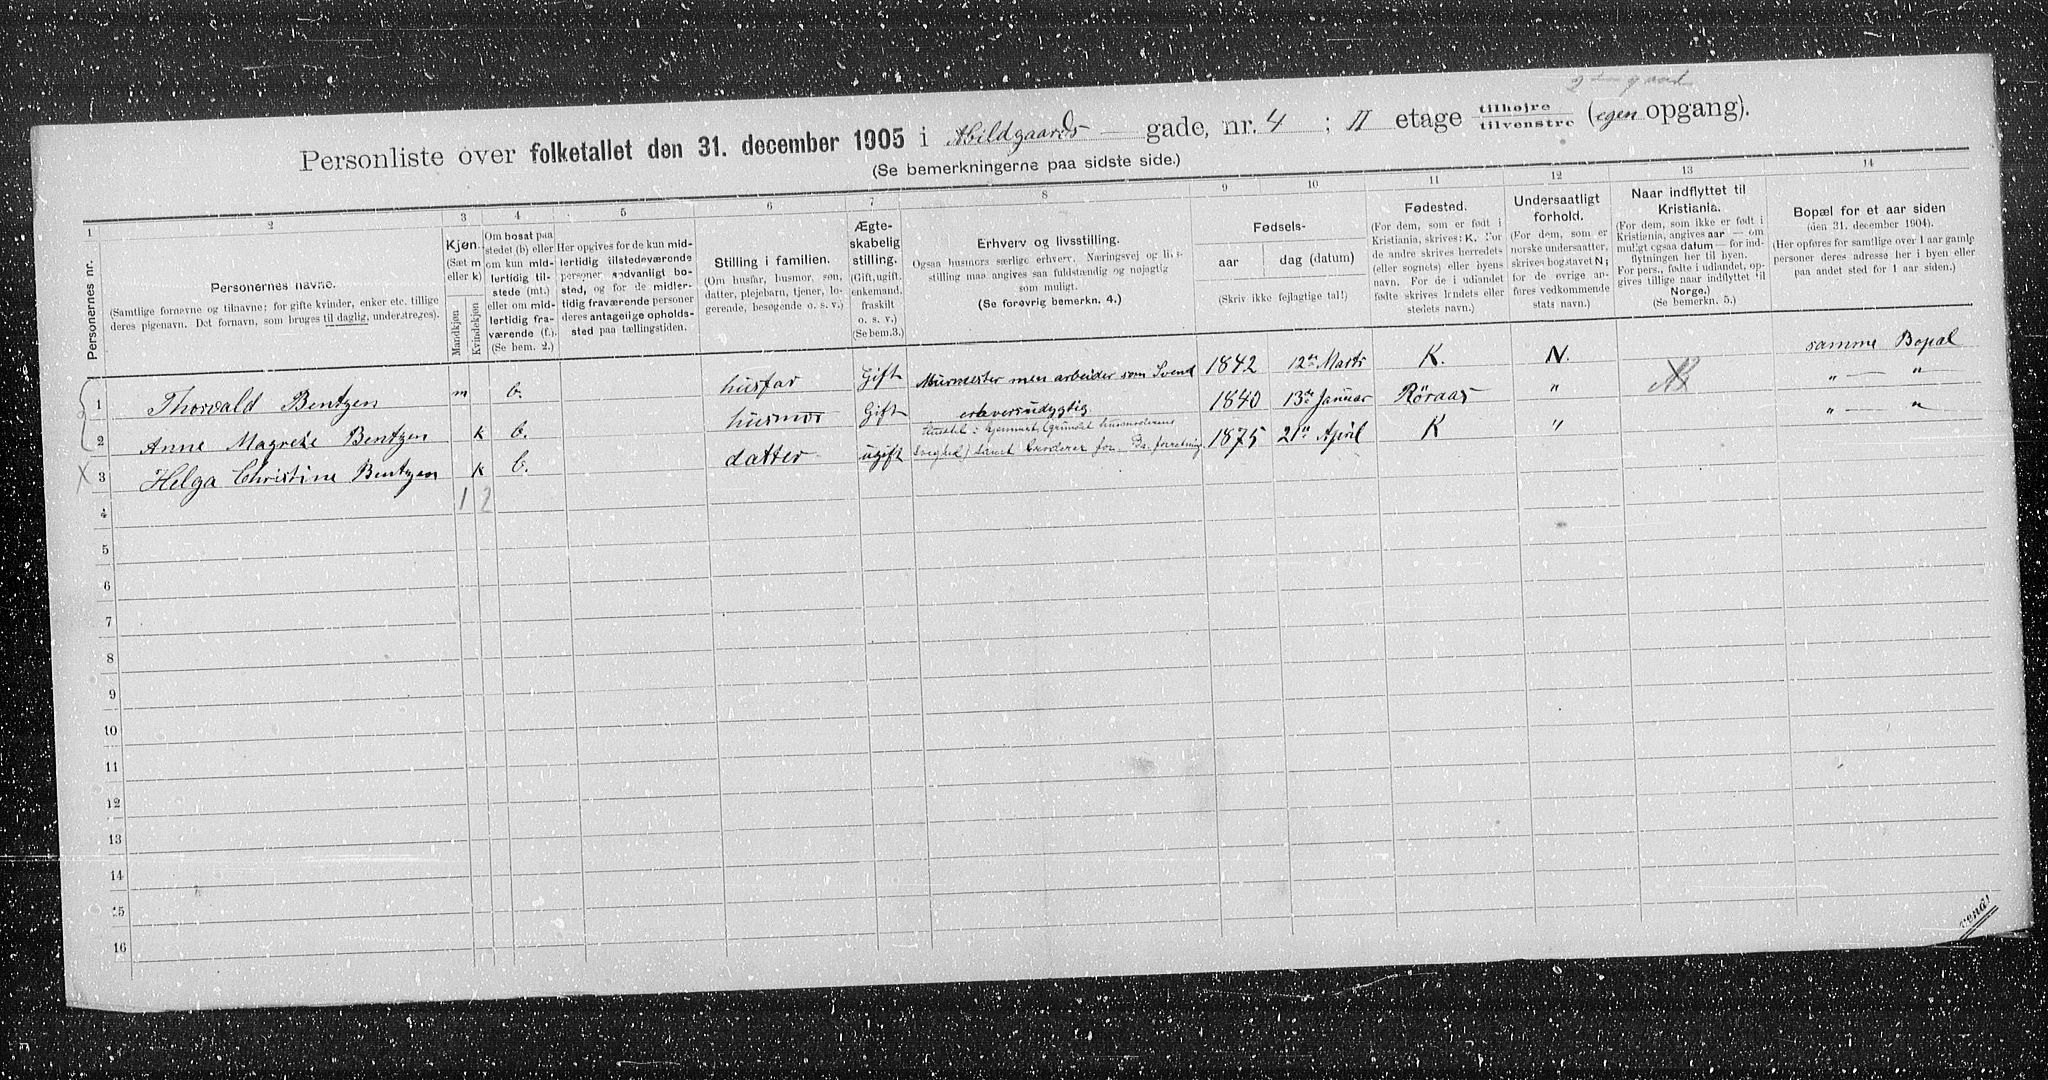 Personliste over folketallet den 31. december 1905 i Abildgaards gade, nr. 4 ; II etage tilhøjre tilvenstre (egen opgang).
(Se bemerkningerne paa sidste side.)
1 2 3 4 5 6 7 8 9 10 11 12 13 14
Personernes nr.
Personernes navne.
(Samtlige fornavne og tilnavne; for gifte kvinder, enker etc. tillige
deres pigenavn. Det fornavn, som bruges til daglig, understreges).
Kjøn.
(Sæt m
eller k)
Mandkjøn
Kvindekjøn
Om bosat paa
stedet (b) eller
om kun mid-
lertidig til-
stede (mt.)
eller om mid-
lertidig fra-
værende (f.).
(Se bem. 2.)
Her opgives for de kun mid-
lertidig tilstedeværende
personer sædvanligt bo-
sted, og for de midler-
tidig fraværende personer
deres antagelige opholds-
sted paa tællingstiden.
Stilling i familien.
(Om husfar, husmor, søn,
datter, plejebarn, tjener, lo-
gerende, besøgende o. s. v.)
Ægte-
skabelig
stilling.
(Gift, ugift,
enkemand,
fraskilt
o. s. v.)
(Se bem. 3.)
Erhverv og livsstilling.
Ogsaa husmors særlige erhverv. Næringsvej og livs-
stilling maa angives saa fuldstændig og nøjagtig
som muligt.
(Se forøvrig bemerkn. 4.)
Fødsels-
aar dag (datum)
(Skriv ikke fejlagtige tal!)
Fødested.
(For dem, som er født i
Kristiania, skrives: K. For
de andre skrives herredets
(eller sognets) eller byens
navn. For de i udlandet
fødte skrives landets eller
stedets navn.)
Undersaatligt
forhold.
(For dem, som er
norske undersaatter,
skrives bogstavet N;
for de øvrige an-
føres vedkommende
stats navn.)
Naar indflyttet til
Kristiania.
(For dem, som ikke er født i
Kristiania, angives aar — om
muligt ogsaa datum — for ind-
flytningen her til byen.
For pers., fødte i udlandet, op-
gives tillige naar indflyttet til
Norge.)
(Se bemerkn. 5.)
Bopæl for et aar siden
(den 31. december 1904).
(Her opføres for samtlige over 1 aar gamle
personer deres adresse her i byen eller
paa andet sted for 1 aar siden.)
1 Thorvald Bentzen m b. husfar Gift Murmester men arbeider som Svend 1842 12te Marts K. N. samme Bopæl
2 Anne Magrete Bentzen k b. husmor Gift erhversudygtig 1840 13de Januar Røraas " " — "
3 Helga Christine Bentzen k b. datter ugift 1875 21de April K " " — "
1 2
4
5
6
7
8
9
10
11
12
13
14
15
16